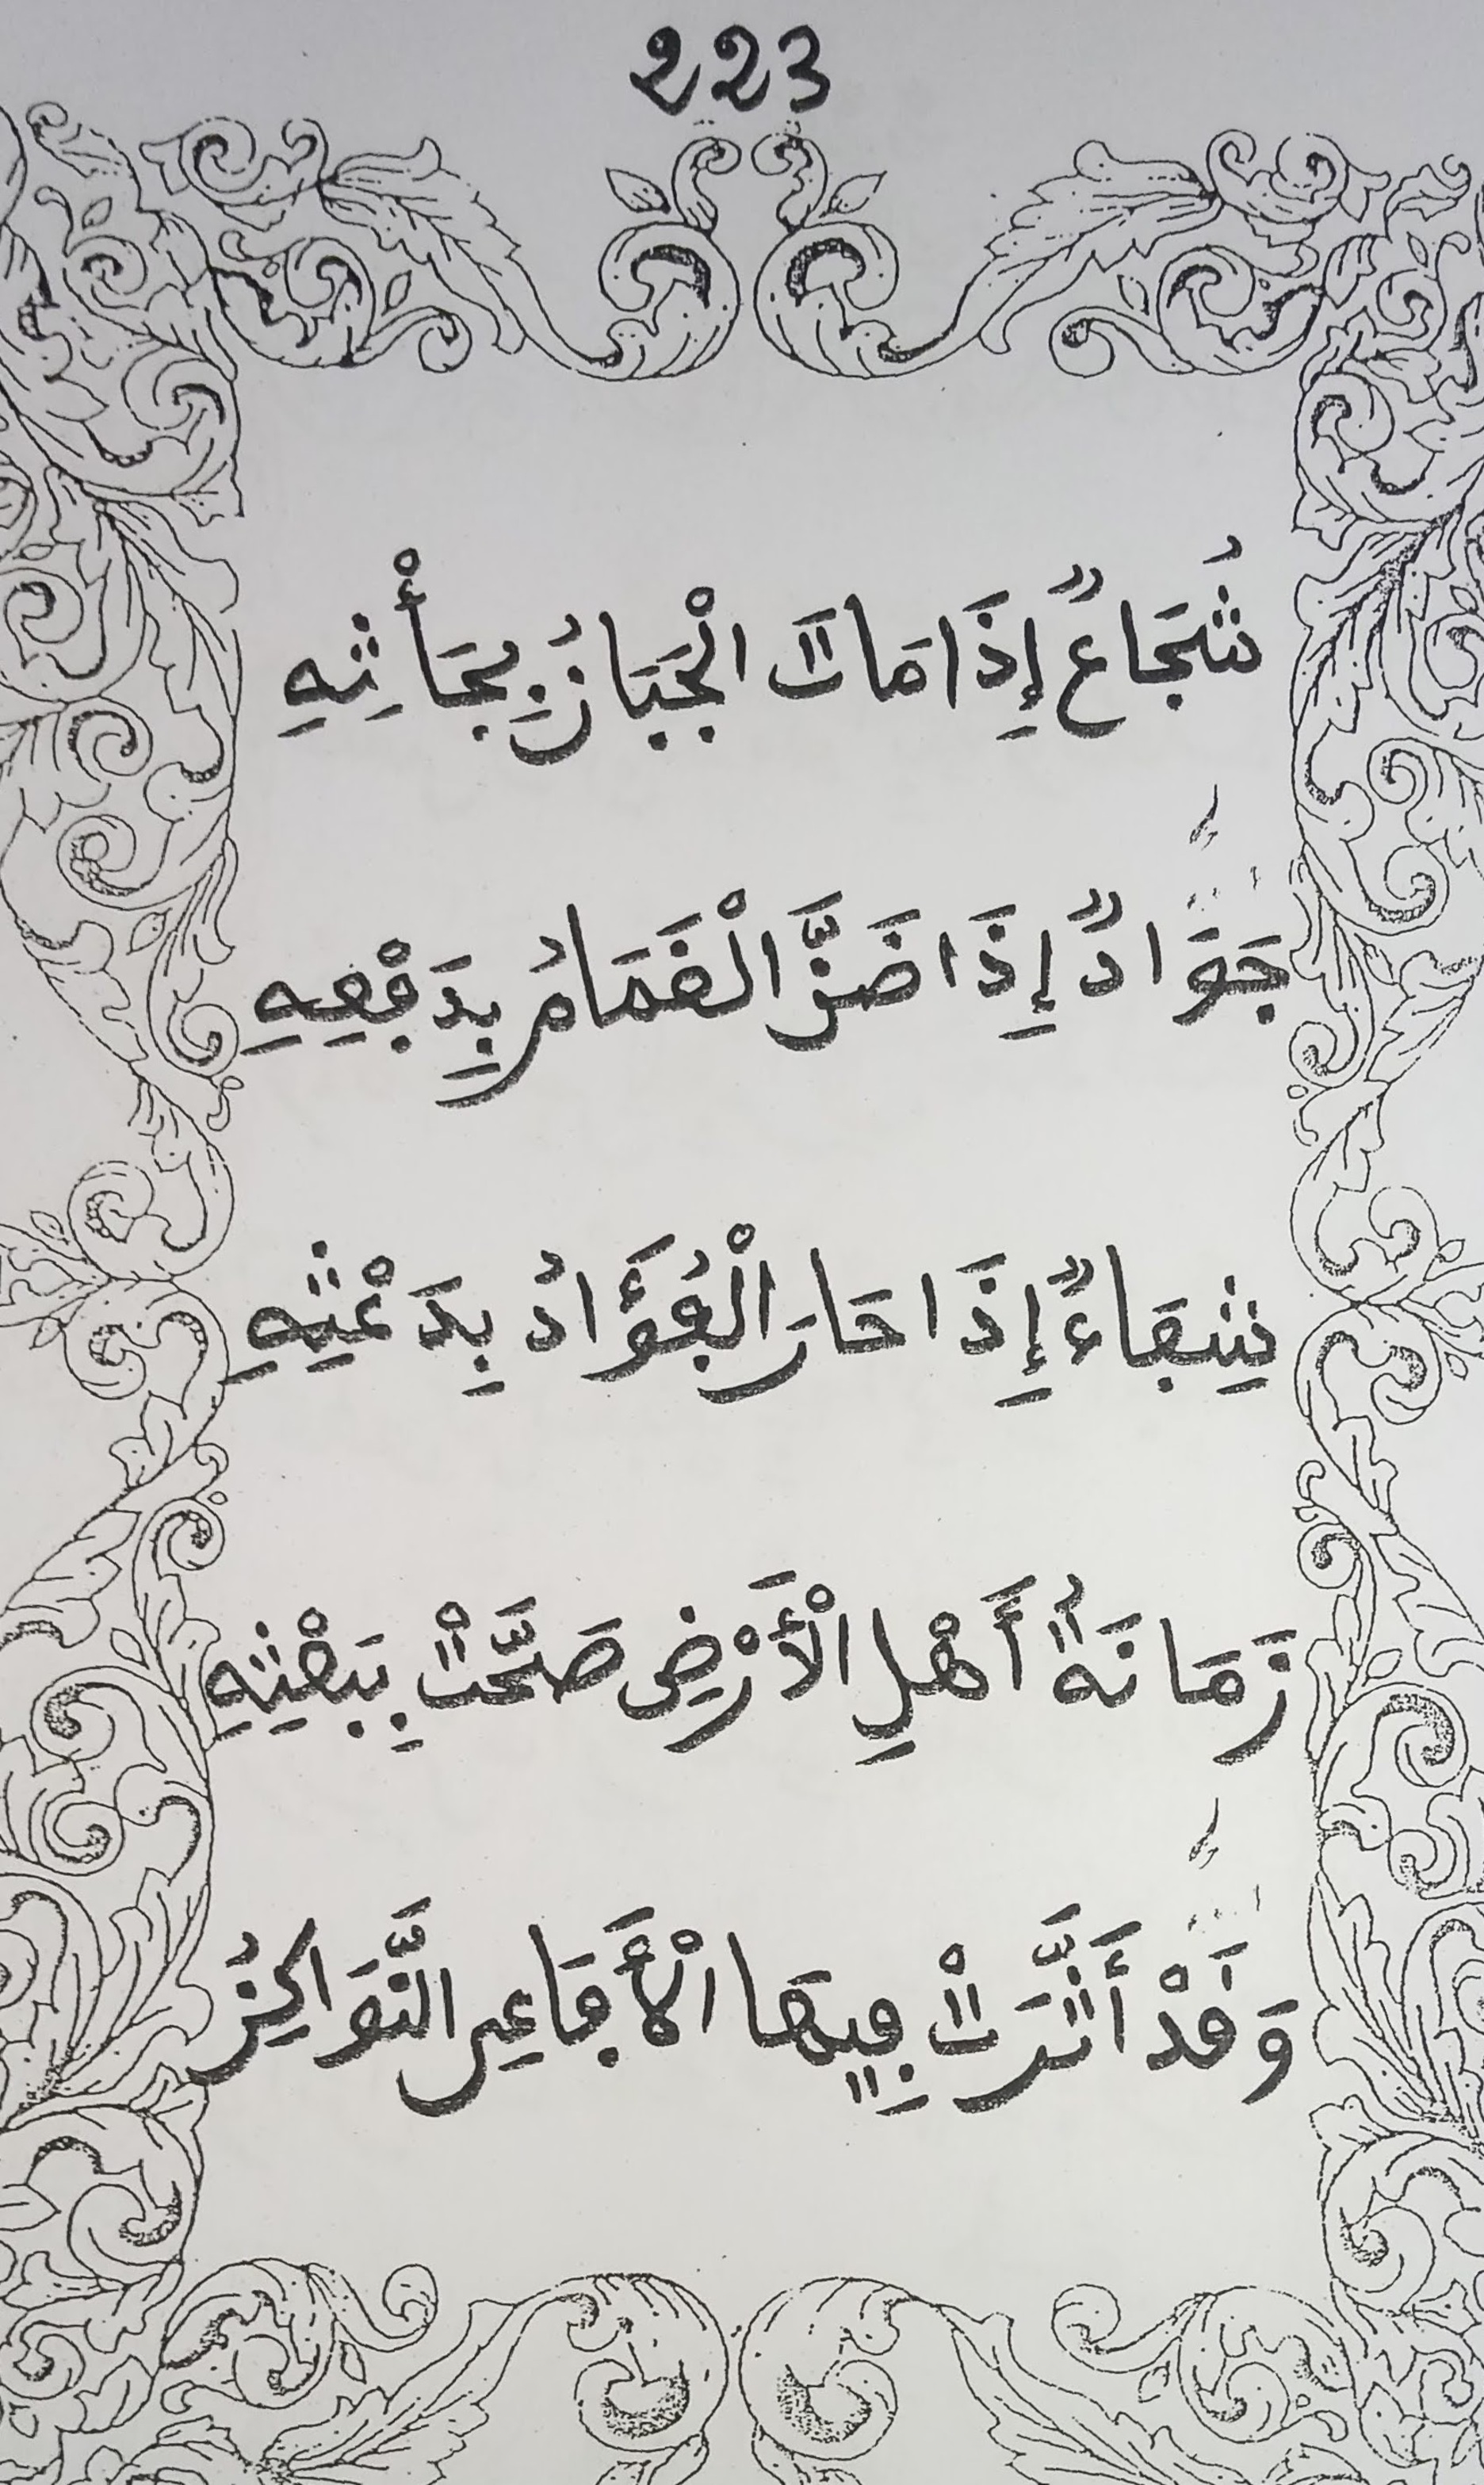 223
شُجَاعٌ إِذَا مَاتَ الْجَبَانُ بِجَأْثِهِ
جَوَادٌ إِذَا ضَنَّ الْغَمَامُ بِدَفْعِهِ
شِفَاءٌ إِذَا حَارَ الْفُؤَادُ بِدَعْثِهِ
زَمَانَةُ أَهْلِ الْأَرْضِ صَحَّتْ بِبَعْثِهِ
وَقَدْ أَثَّرَتْ فِيهَا الْأَفَاعِي النَّوَاكِزُ